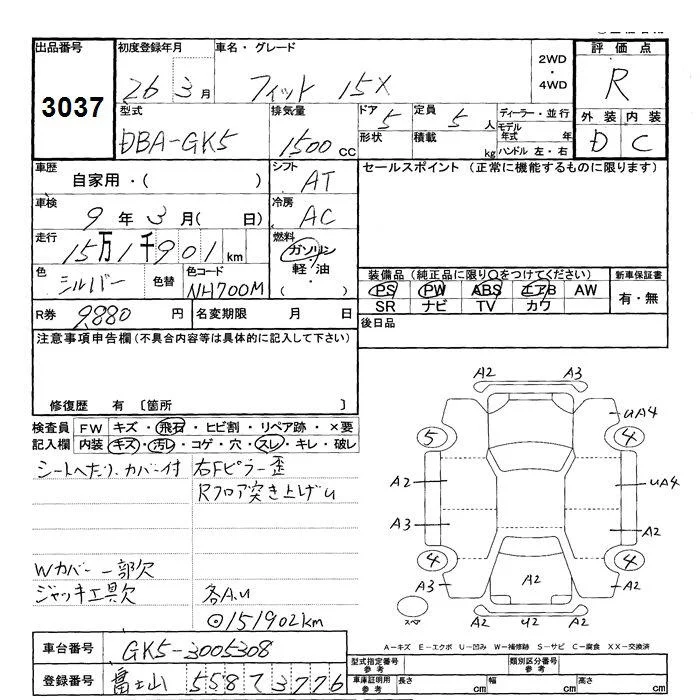 出品番号 初度登録年月 車名・グレード 2WD・4WD 評価点
3037 26 3月 フィット 15X R
型式 排気量 ドア 5 定員 5人 ディーラー・並行 外装 内装
DBA-GK5 1500cc 形状 積載 kg モデル年式 年 ハンドル 左・右 D C
車歴 自家用・( ) シフト AT セールスポイント (正常に機能するものに限ります)
車検 9年3月( 日) 冷房 AC
走行 15万1千901km 燃料 ガソリン・軽油 ( )
色 シルバー 色替 色コード NH700M
装備品 (純正品に限り○をつけてください) 新車保証書
PS PW ABS エアB AW 有・無
SR ナビ TV カワ
R券 9880円 名変期限 月 日 後日品
注意事項申告欄 (不具合内容等は具体的に記入して下さい)
修復歴 有 〔箇所 〕
検査員 FW キズ・飛石・ヒビ割・リペア跡・×要
記入欄 内装 キズ・汚レ・コゲ・穴・スレ・キレ・破レ
シートへたり、カバー付 右Fピラー歪
Rフロア突き上げU
Wカバー一部欠
ジャッキ工具欠 各A.U
⊙151902km
A2 A3
A2 UA4
5 4
A2 UA4
A3 A2
4 4
A3 A2 A2
スペア A2 U2 A2
A-キズ E-エクボ U-凹み W-補修跡 S-サビ C-腐食 XX-交換済
車台番号 GK5-3005308 型式指定番号 参考 類別区分番号 参考
登録番号 富士山 558 て 3776 車庫証明用 参考 長さ cm 幅 cm 高さ cm